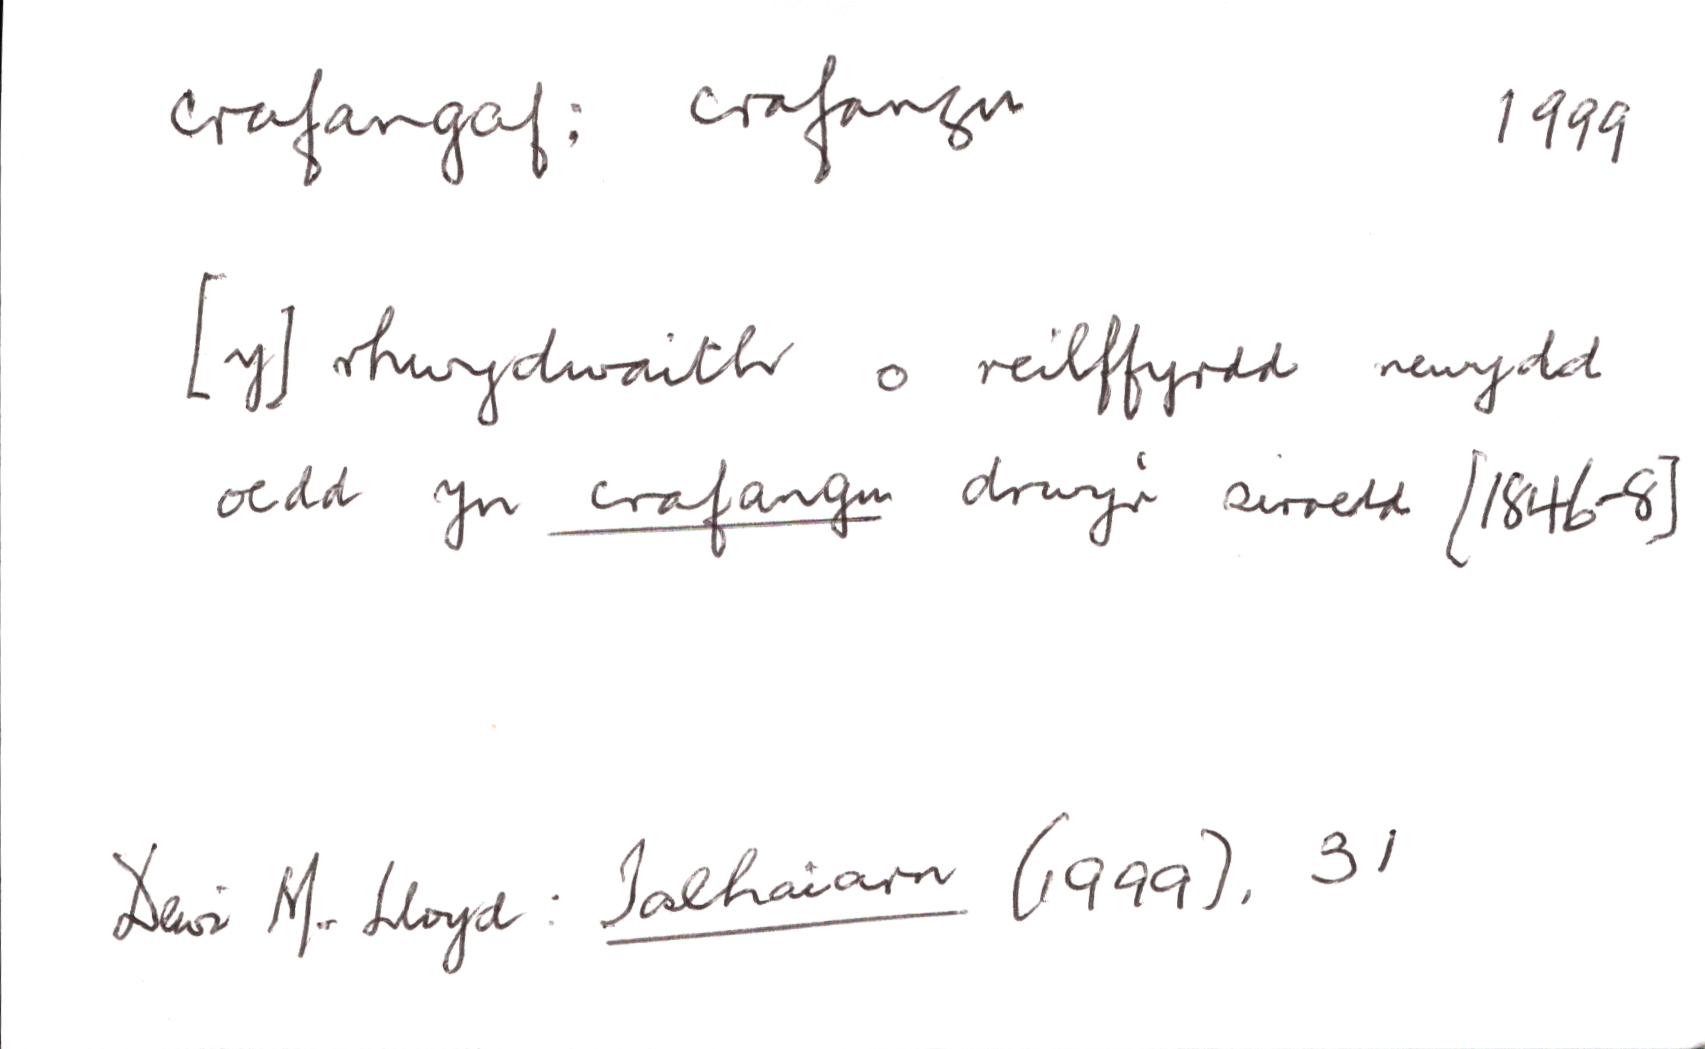 crafangaf: crafangu 1999
[y] rhwydwaith o reilffyrdd newydd
oedd yn crafangu drwy'r siroedd [1846-8]
Dewi M. Lloyd: Talhaiarn (1999), 31